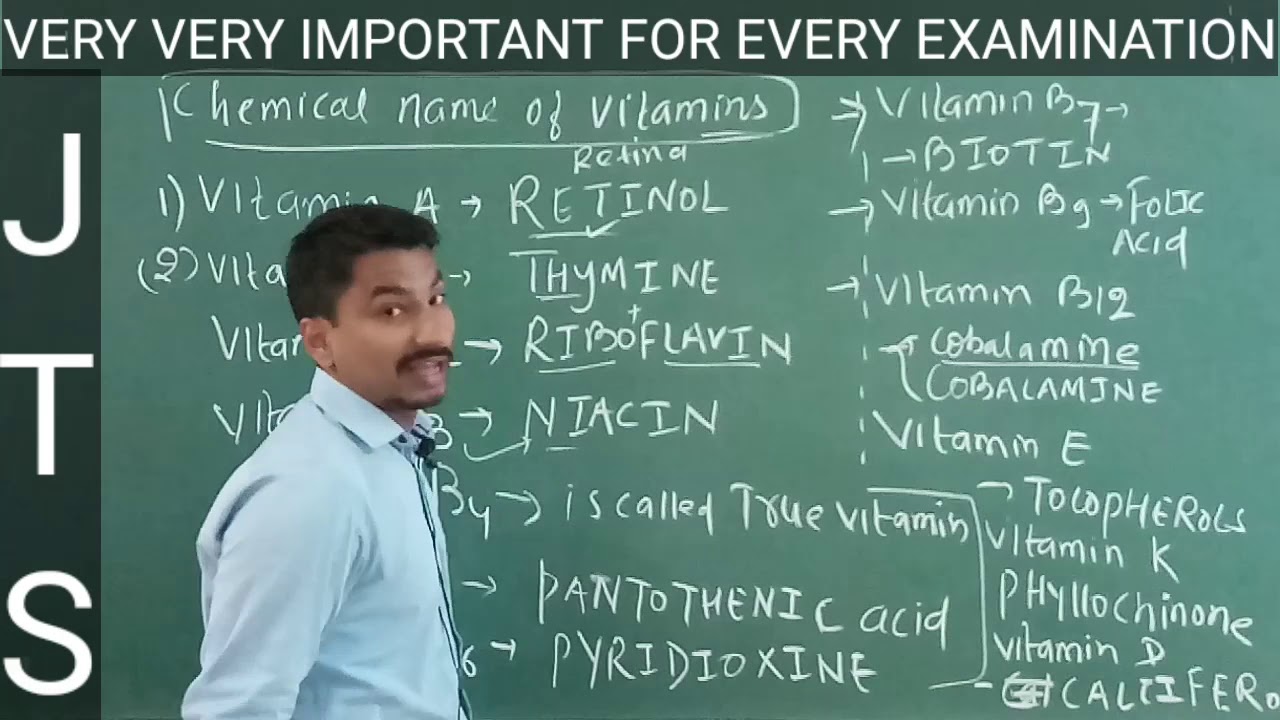 VERY VERY IMPORTANT FOR EVERY EXAMINATION
J
T
S
Chemical name of vitamins
Retina
1) Vitamin A → RETINOL
(2) Vita → THYMINE
Vitam → RIBO+FLAVIN
Vita B → NIACIN
B4 → is called True vitamin
→ PANTOTHENIC acid
6 → PYRIDIOXINE
→ Vitamin B7 →
→ BIOTIN
→ Vitamin B9 → FOLIC
Acid
→ Vitamin B12
→ cobalamine
COBALAMINE
Vitamin E
→ TOCOPHEROLS
Vitamin K
PHYlloChinone
Vitamin D
CALCIFERO